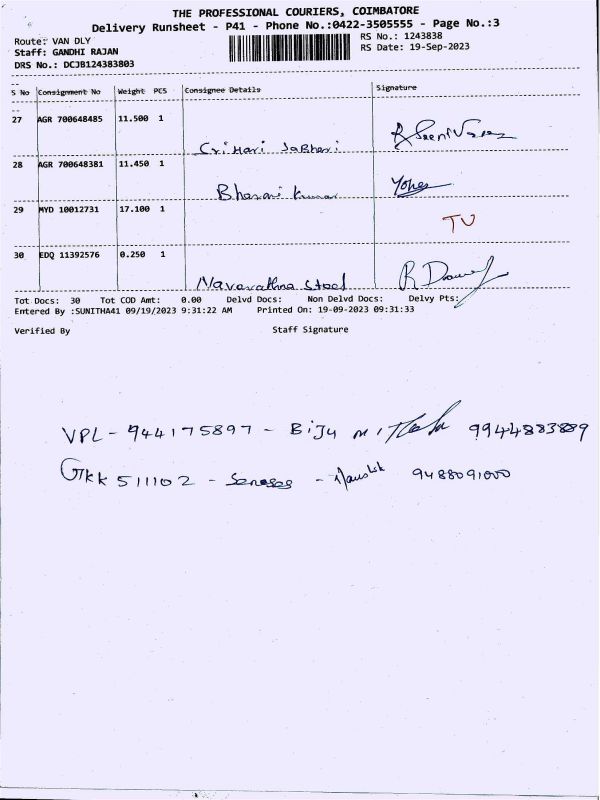 THE PROFESSIONAL COURIERS, COIMBATORE
Delivery Runsheet - P41 - Phone No.:0422-3505555 - Page No.:3
Route: VAN DLY RS No.: 1243838
Staff: GANDHI RAJAN RS Date: 19-Sep-2023
DRS No.: DCJB124383803
S No Consignment No Weight PCS Consignee Details Signature
27 AGR 700648485 11.500 1
28 AGR 700648381 11.450 1 Bharani Kumar
29 MYD 10012731 17.100 1 TV
30 EDQ 11392576 0.250 1 Navarathna Steel
Tot Docs: 30 Tot COD Amt: 0.00 Delvd Docs: Non Delvd Docs: Delvy Pts:
Entered By :SUNITHA41 09/19/2023 9:31:22 AM Printed On: 19-09-2023 09:31:33
Verified By Staff Signature
VPL - 944175897 - BIJU 9944883889
GKK 511102 - 9488091000